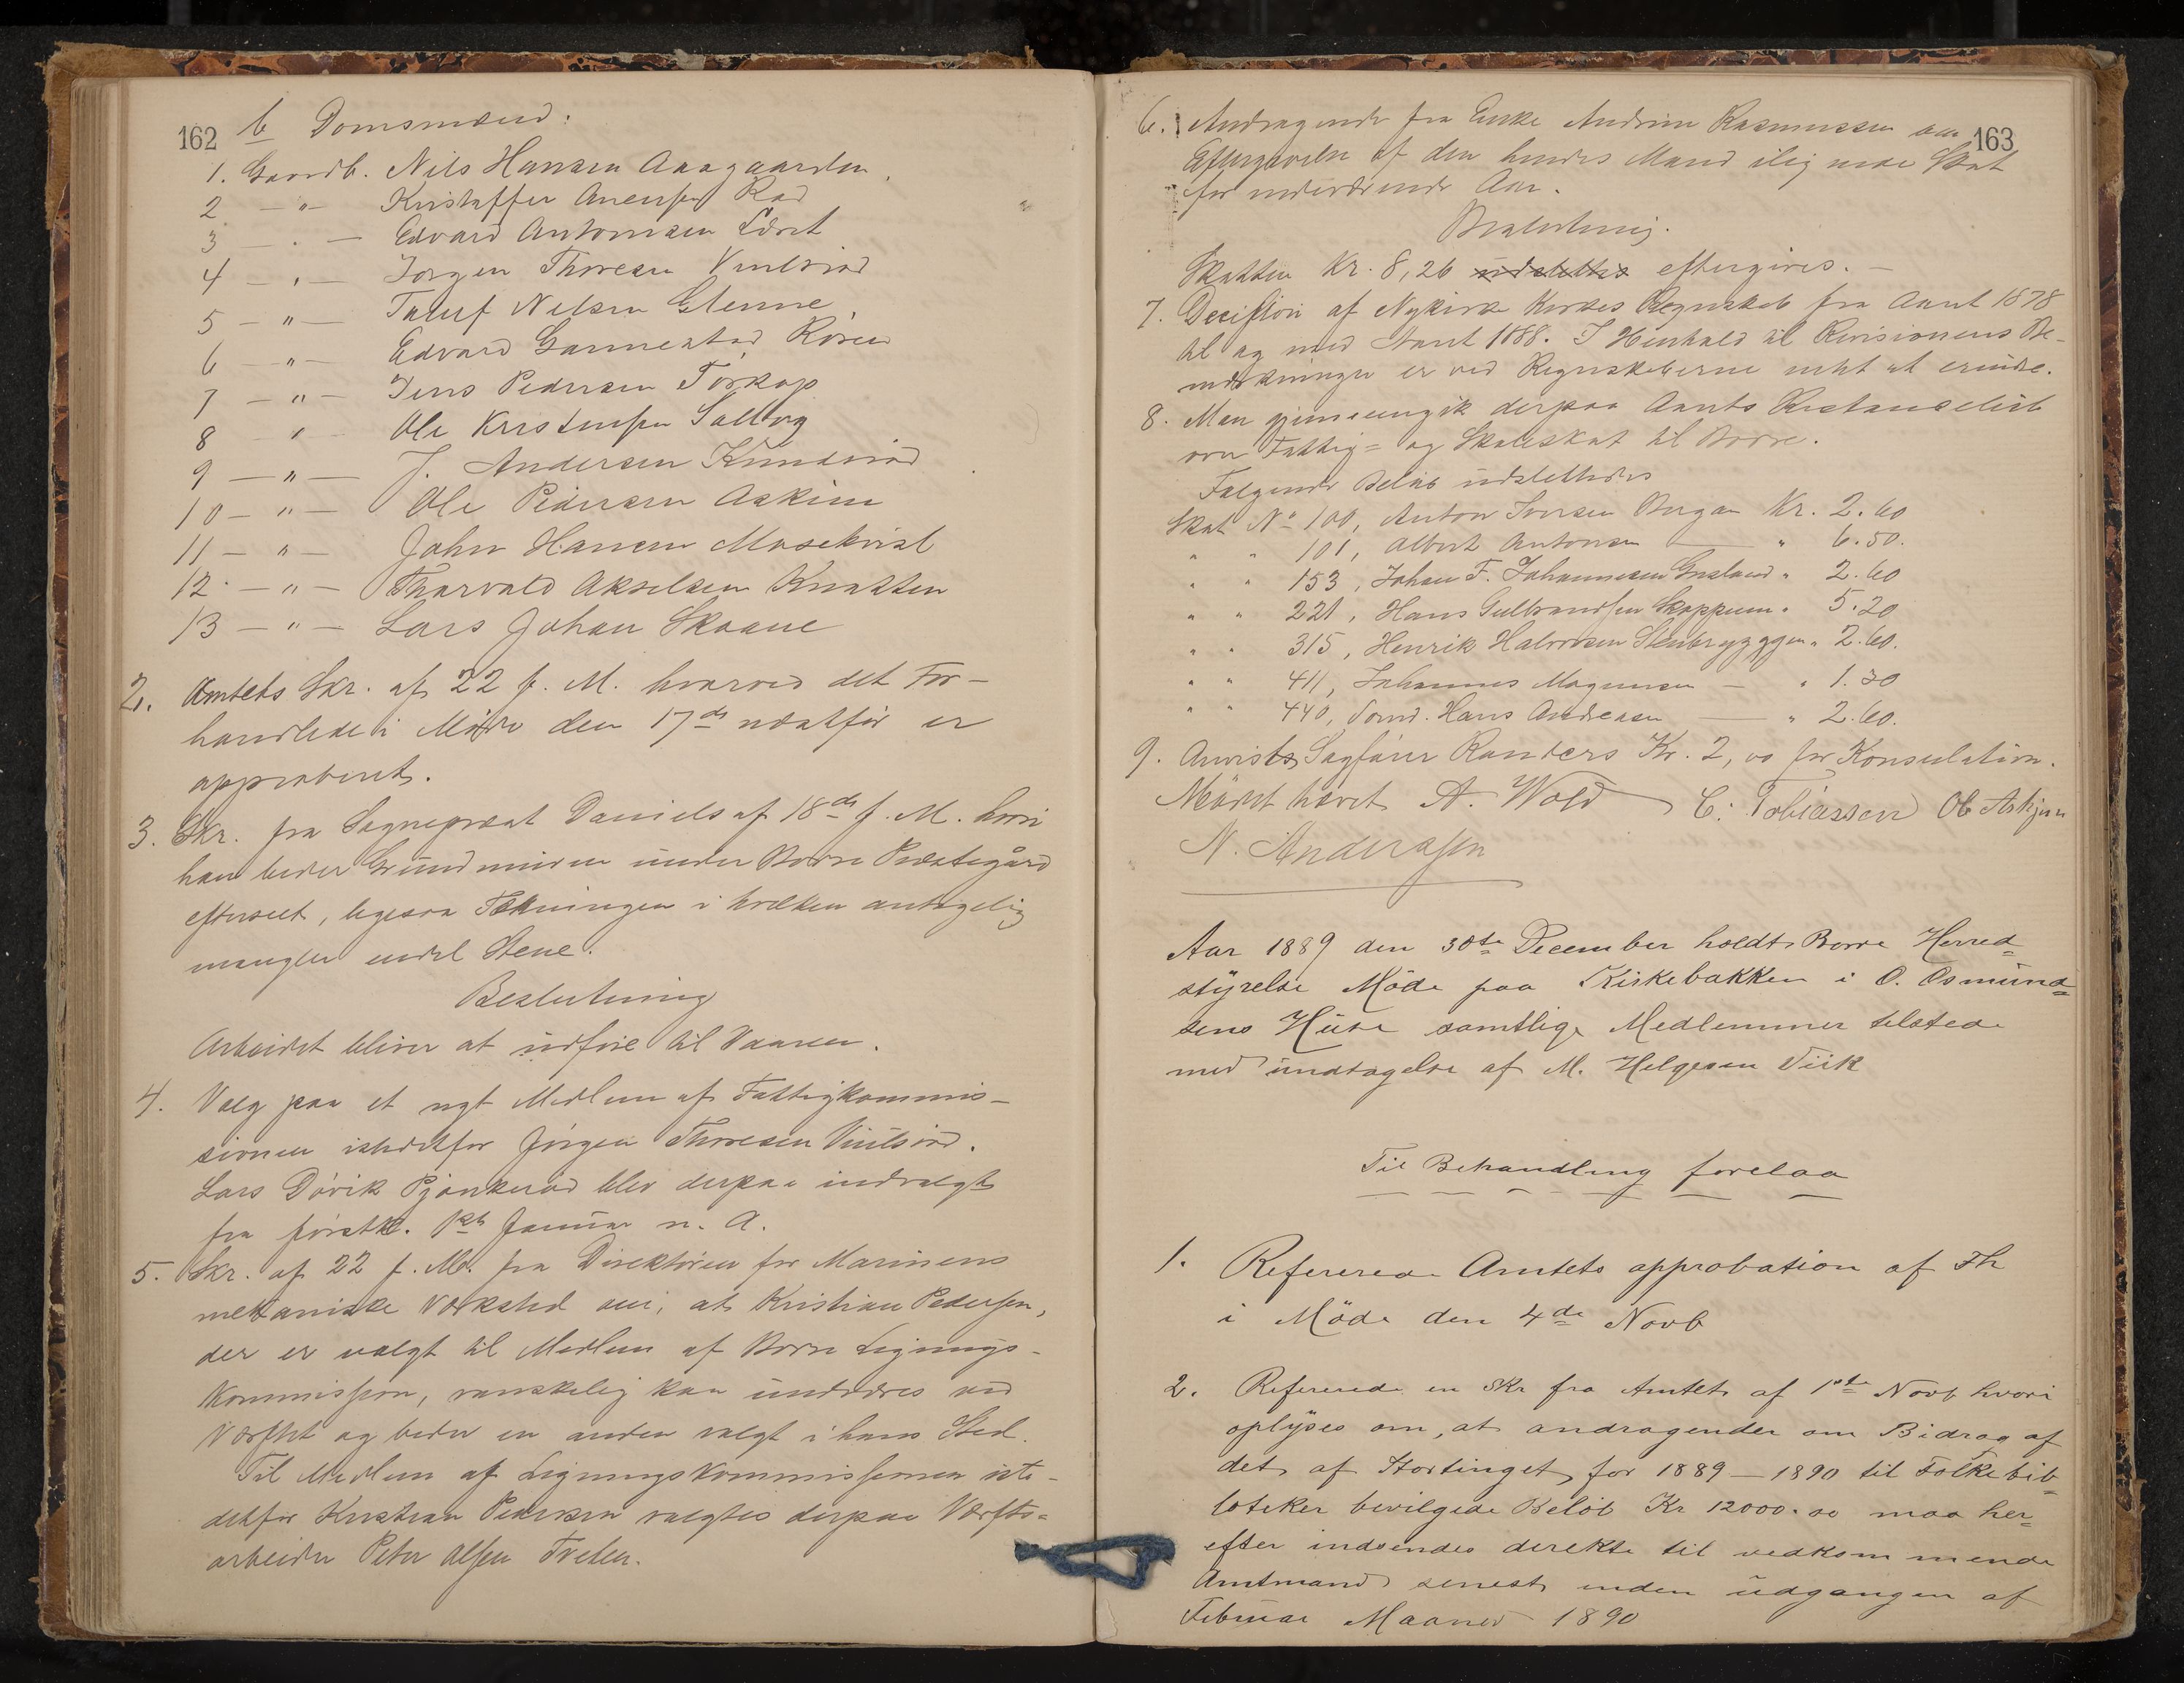 162
b Domsmænd:
1. Gaardb. Nils Hansen Aagaarden
2 — " — Kristoffer Anensen Rød
3 — " — Edvard Antonisen
4 — " — Jørgen Thoresen Vintsrød
5 — " — Nilsen Glenne
6 — " — Edvard Røren
7 — " — Jens Pedersen Torkop
8 — " — Ole Kristensen Solberg
9 — " — J. Andersen Knudsrød
10 — " — Ole Pedersen Askim
11 — " — John Hansen Mosekvist
12 — " — Tharvald Akselsen Knatten
13 — " — Lars Johan Skaane
2. Amtets Skr. af 22 f. M. hvorved det For-
handlede i Møde den 17de næstfør er
approberet.
3. Skr. fra Sogneprest Daniels af 18de f. M. hvori
han beder Grundmuren under Borre Prestegård
efterseet, ligesaa Tækningen i hvilken antagelig
mangler endel Stene.
Beslutning
Arbeidet bliver at udføre til Vaaren.
4. Valg paa et nyt Medlem af Fattigkommis-
sionen istedetfor Jørgen Thoresen Vintsrød.
Lars Døvik Pjonkerød blev derpaa indvalgt
fra førstk. 1ste Januar n. A.
5. Skr. af 22 f. M. fra Direktøren for Marinens
mekaniske Værksted om, at Kristian Pedersen,
der er valgt til Medlem af Borre Lignings-
kommission, vanskelig kan undværes ved
Værftet og beder en anden valgt i hans Sted.
Til Medlem af Ligningskommissionen iste-
detfor Kristian Pedersen valgtes derpaa Værfts=
arbeider Peter Olsen Tveten.
163
6. Andragende fra Enke Andrine Rasmussen om
Eftergivelse af den hendes Mand ilignede Skat
for indeværende Aar.
Beslutning.
Skatten Kr. 8,26 udslettes eftergives. —
7. Decision af Nykirke Kirkes Regnskab fra Aaret 1878
til og med Aaret 1888. I Henhold til Revisionens Be-
mærkninger er ved Regnskaberne intet at erindre.
8. Man gjennemgik derpaa Aarets Restanseliste
over Fattig= og Skoleskat til Borre.
Følgende Beløb udslettedes
Skat No 100, Anton Iversen Borgen Kr. 2.60
" " 101, Albert Antonsen — " 6.50.
" " 153, Johan F. Johannesen " 2.60
" " 221, Hans Gulbrandsen Skoppum " 5.20
" " 315, Henrik Halvorsen Stenbryggen " 2.60.
" " 411, Johannes Magnusen — " 1.30
" " 440, Hans Andreasen — " 2.60.
9. Anvistes Sagfører Randers Kr. 2,00 for Konsulation.
Mødet hævet A. Wold C. Tobiassen Ob Askjem
N. Andersen
Aar 1889 den 30te December holdt Borre Herred=
styrelse Møde paa Kirkebakken i O. Osmund=
sens Huse samtlige Medlemmer tilstede
med undtagelse af M. Helgesen Viik
Til Behandling forelaa
1. Refererede Amtets approbation af Fh
i Møde den 4de Novb
2. Refererede en Skr fra Amtet af 1ste Novb hvori
oplyses om, at andragender om Bidrag af
det af Stortinget for 1889—1890 til Folkebib=
loteker bevilgede Beløb Kr 12000.00 maa her=
efter indsendes direkte til vedkommende
Amtmand senest inden udgangen af
Februar Maaned 1890